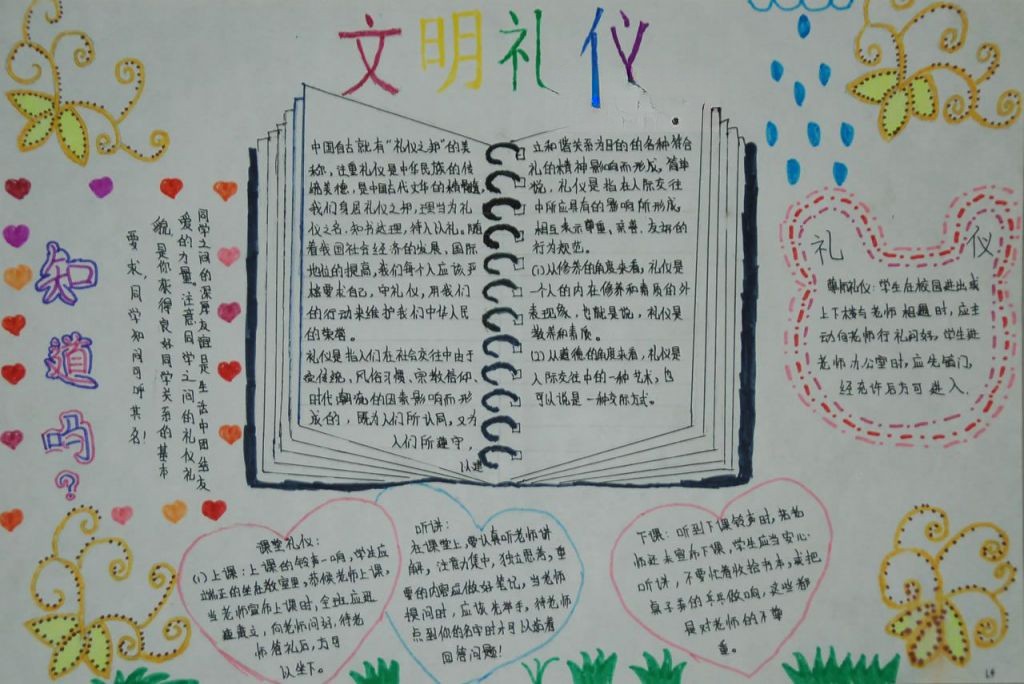 文明礼仪
中国自古就有“礼仪之邦”的美
称，注重礼仪是中华民族的传
统美德，是中国古代文化的精髓
我们身居礼仪之邦，理当为礼
仪之名，知书达理，待人以礼。随
着我国社会经济的发展、国际
地位的提高，我们每个人应该严
格要求自己，守礼仪，用我们
的行动来维护我们中华人民
的荣誉。
礼仪是指人们在社会交往中由于
受传统、风俗习惯、宗教信仰、
时代潮流的因素影响而形
成的，既为人们所认同，又为
人们所遵守，
以建
立和谐关系为目的的各种符合
礼的精神影响而形成。简单
说，礼仪是指在人际交往
中所应具有的影响所形成
相互表示尊重、亲善、友好的
行为规范。
(1)从修养的角度来看，礼仪是
一个人的内在修养和素质的外
表现形，也就是说，礼仪是
教养和素质。
(2)从道德的角度来看，礼仪是
人际交往中的一种艺术，也
可以说是一种交际方式。
知道吗?
同学之间的深厚友谊是生活中团结友
爱的力量。注意同学之间的礼仪礼
貌是你获得良好同学关系的基本
要求，同学知问可呼其名！
礼 仪
尊师礼仪：学生在校园进出或
上下楼与老师相遇时，应主
动向老师行礼问好，学生进
老师办公室时，应先敲门，
经允许后方可进入。
课堂礼仪：
(1)上课：上课的铃声一响，学生应
端正的坐在教室里，恭候老师上课，
当老师宣布上课时，全班应迅
速肃立，向老师问好，待老
师答礼后，方可
以坐下。
听讲：
在课堂上，要认真听老师讲
解，注意力集中，独立思考，重
要的内容应做好笔记，当老师
提问时，应该先举手，待老师
点到你的名字时才可以站着
回答问题！
下课：听到下课铃声时，若老
师还未宣布下课，学生应当安心
听讲，不要忙着收拾书本，或把
桌子弄的乒乓做响，这些都
是对老师的不尊
重。